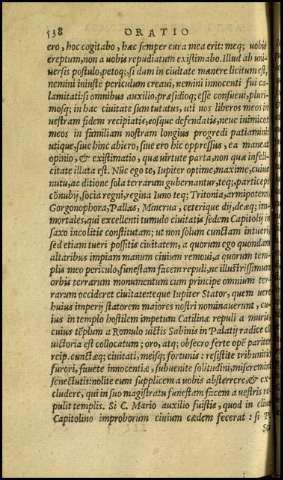 538 ORATIO
ero, hoc cogitabo, hæc semper cura mea erit: meq; uobis
ereptum, non a uobis repudiatum existimabo. Illud ab uni-
uersis postulo, petoq;: si dum in ciuitate manere licitum est,
nemini iniuste periculum creaui, nemini innocenti fui ca-
lamitati: si omnibus auxilio, præsidioq; esse consueui, pluri-
mosq; in hac ciuitate sum tutatus, uti uos liberos meos in
uestram fidem recipiatis, eosque defendatis, neue inimicos
meos in familiam nostram longius progredi patiamini
utique, siue hinc abiero, siue ero hic oppressus, ea maneat
opinio, & existimatio, qua virtute parta, non qua infeli-
citate illata est. Nũc ego te, Iuppiter optime, maxime, cuius
nutu, ac ditione sola terrarum gubernantur, teq; particeps
cõnubij, socia regni, regina Iuno: teq; Tritonia, armipotens
Gorgonophora, Pallas, Minerua, ceterique dij, deæq; im-
mortales, qui excellenti tumulo ciuitatis sedem Capitolij in
saxo incolitis constitutam: ut non solum cunctam intueri
sed etiam tueri possitis ciuitatem, a quorum ego quondam
altaribus impiam manum ciuium remoui, a quorum tem-
plis meo periculo, funestam facem repuli, ne illustrissimum
orbis terrarum monumentum cum principe omnium ter-
rarum occideret ciuitate: teque Iuppiter Stator, quem uere
huius imperij statorem maiores nostri nominauerunt, cu-
ius in templo hostilem impetum Catilinæ repuli a muris
cuius tẽplum a Romulo uictis Sabinis in Palatij radice cũ
uictoria est collocatum: oro, atq; obsecro ferte opẽ pariter
reip. cunctæq; ciuitati, meisq; fortunis: resistite tribunitio
furori, fauete innocentiæ, subuenite solitudini, miseremini
senectuti: nolite eum supplicem a uobis absterrere, & ex-
cludere, qui in suo magistratu funestam facem a uestris re-
pulit templis. Si C. Mario auxilio fuistis, quod in cliuo
Capitolino improborum ciuium cædem fecerat: si P.